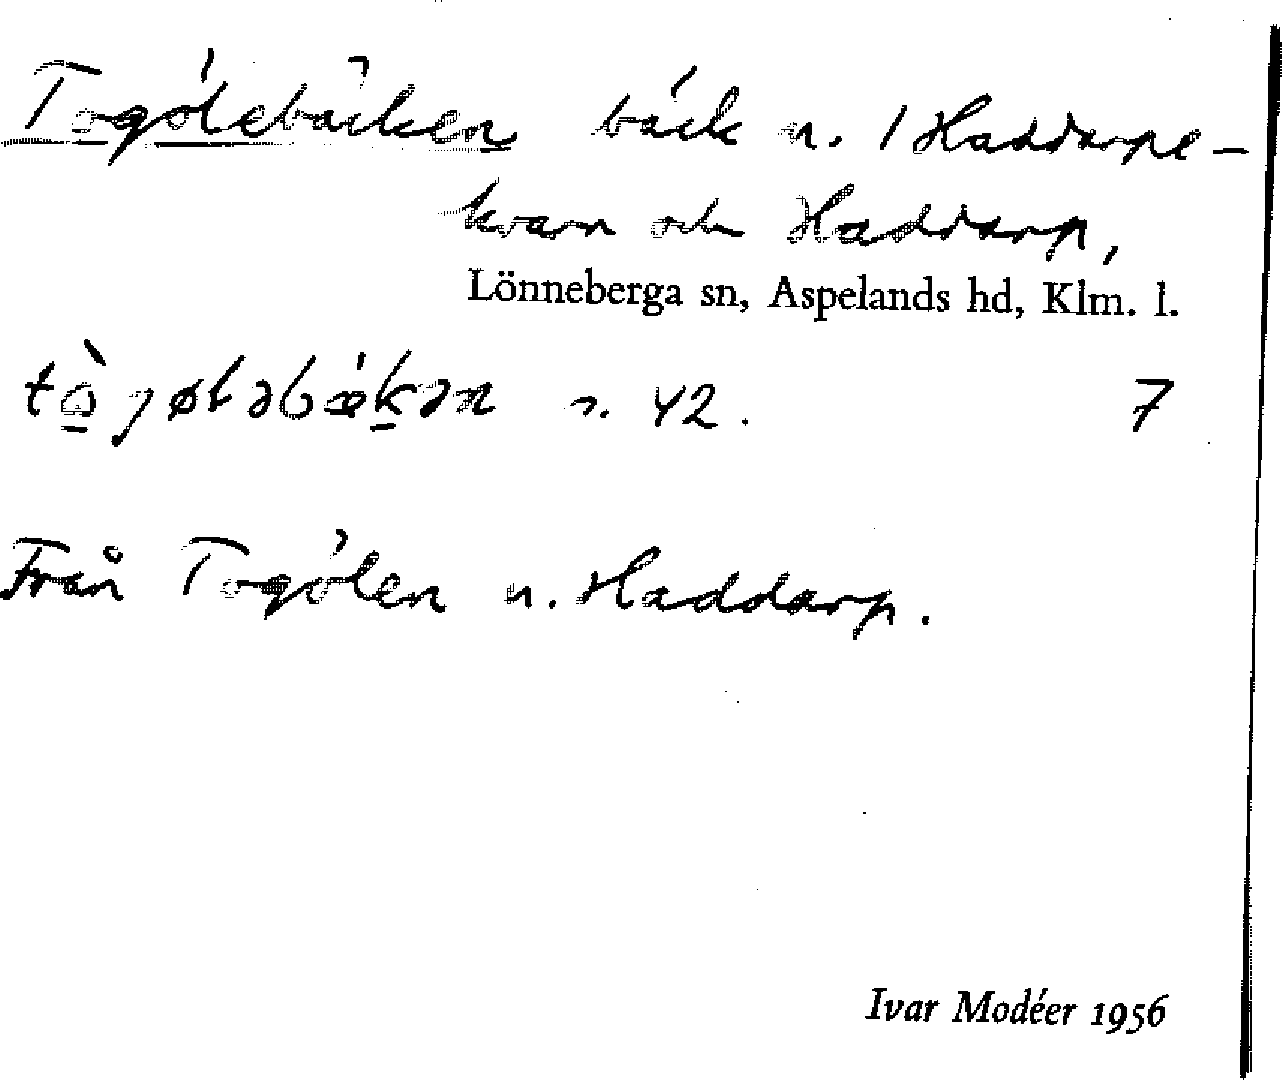 Togölebäcken bäck n. / Haddarpe-
kvarn och Haddarp,
Lönneberga sn, Aspelands hd, Klm. l.
tò̱gøləbæ̀ḵən s. 42. 7
Från Togölen n. Haddarp.
Ivar Modéer 1956